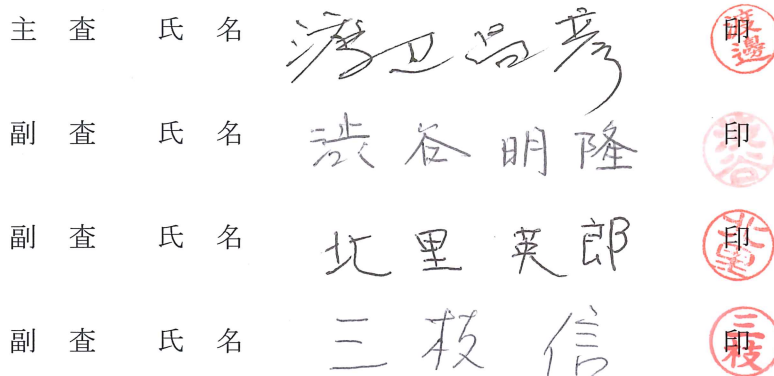 主査 氏名 渡辺昌彦 印 渡邊
副査 氏名 渋谷明隆 印 渋谷
副査 氏名 北里英郎 印 北里
副査 氏名 三枝信 印 三枝